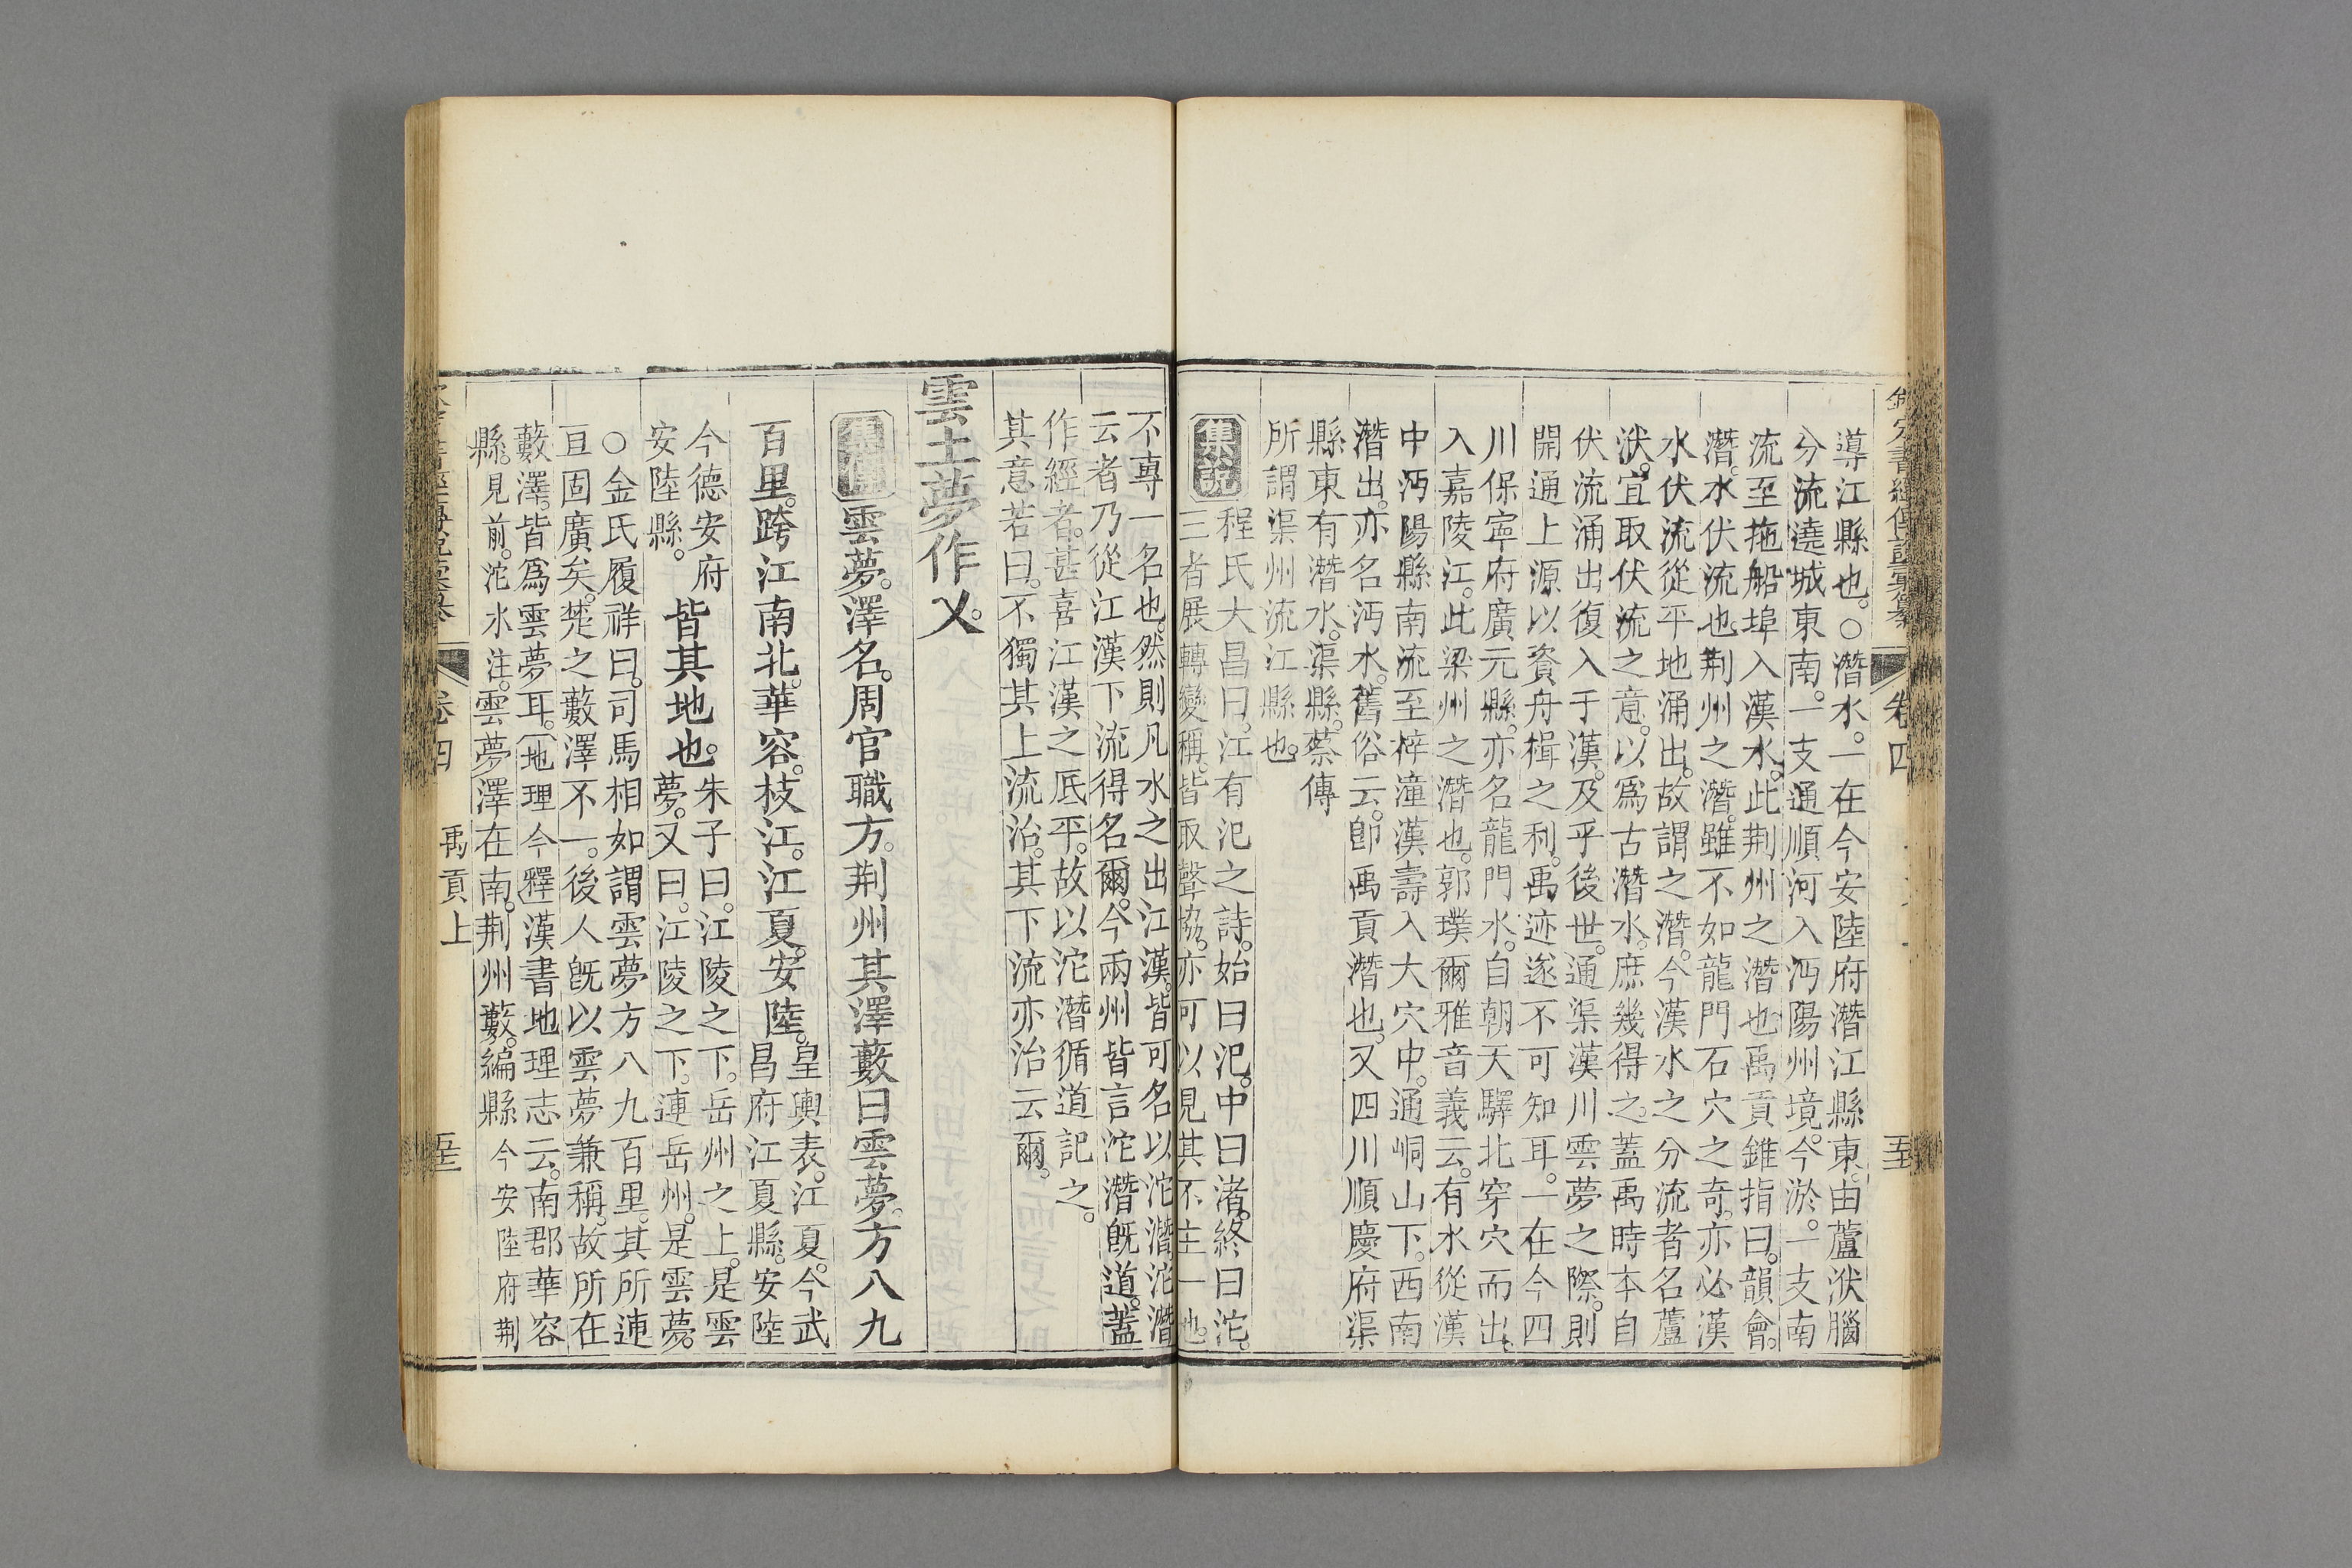 卷四
導江縣也。○潛水。一在今安陸府潛江縣東。由蘆洑腦
分流遶城東南。一支通順河入沔陽州境。今淤。一支南
流至拖船埠入漢水。此荆州之潛也。禹貢錐指曰。韻會。
潛。水伏流也。荆州之潛。雖不如龍門石穴之奇。亦必漢
水伏流從平地涌出。故謂之潛。今漢水之分流者名蘆
洑。宜取伏流之意。以爲古潛水。庶幾得之。蓋禹時本自
伏流涌出復入于漢。及乎後世。通渠漢川雲夢之際。則
開通上源以資舟楫之利。禹迹遂不可知耳。一在今四
川保寧府廣元縣。亦名龍門水。自朝天驛北穿穴而出。
入嘉陵江。此梁州之潛也。郭璞爾雅音義云。有水從漢
中沔陽縣南流至梓潼漢壽入大穴中。通峒山下。西南
潛出。亦名沔水。舊俗云。卽禹貢潛也。又四川順慶府渠
縣東有潛水。渠縣。蔡傳
所謂渠州流江縣也。
集說
程氏大昌曰。江有汜之詩。始曰汜。中曰渚。終曰沱。
三者展轉變稱。皆取聲協。亦可以見其不主一也。
不專一名也。然則凡水之出江漢。皆可名以沱潛。沱潛
云者乃從江漢下流得名爾。今兩州皆言沱潛旣道。蓋
作經者。甚喜江漢之底平。故以沱潛循道記之。
其意若曰。不獨其上流治。其下流亦治云爾。
雲土夢作乂。
集傳
雲夢。澤名。周官職方。荆州其澤藪曰雲夢。方八九
百里。跨江南北。華容。枝江。江夏。安陸。
皇輿表。江夏。今武
昌府江夏縣。安陸
今德安府
安陸縣。
皆其地也。
朱子曰。江陵之下。岳州之上。是雲
夢。又曰。江陵之下。連岳州。是雲夢。
○金氏履祥曰。司馬相如謂雲夢方八九百里。其所連
亘固廣矣。楚之藪澤不一。後人旣以雲夢兼稱。故所在
藪澤。皆爲雲夢耳。
地理今釋
漢書地理志云。南郡華容
縣。見前。沱水注。雲夢澤在南。荆州藪。編縣今安陸府荆
卷四
禹貢上